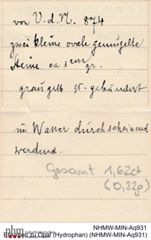 von V.d.N. 874
zwei kleine ovale gemugelte
Steine ca 1 cm gr.
graugelb gebändert
im Wasser durchscheinend
werdend.
Gesamt 1,62ct
(0,32g)
NHMW-MIN-Aq931
zu Opal (Hydrophan) (NHMW-MIN-Aq931)
nhm